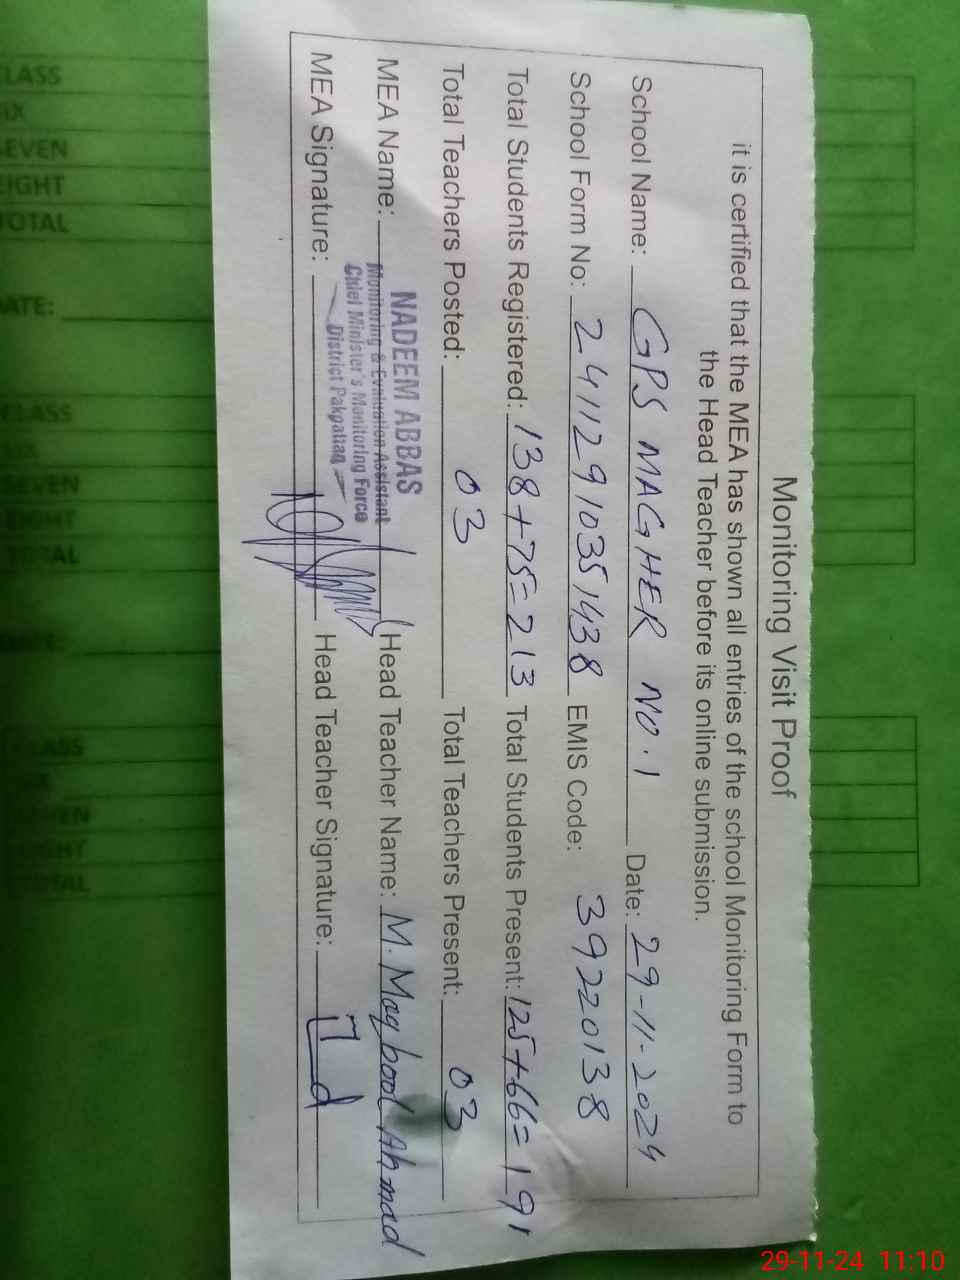 Monitoring Visit Proof
it is certified that the MEA has shown all entries of the school Monitoring Form to
the Head Teacher before its online submission.
School Name: GPS MAGHER NO.1 Date: 29-11-2024
School Form No: 24112910351438 EMIS Code: 39220138
Total Students Registered: 138+75=213 Total Students Present: 125+66=191
Total Teachers Posted: 03 Total Teachers Present: 03
MEA Name: Head Teacher Name: M. Maqbool Ahmad
NADEEM ABBAS
Monitoring & Evaluation Assistant
Chief Minister's Monitoring Force
District Pakpattan
MEA Signature: Head Teacher Signature:
CLASS
SIX
SEVEN
EIGHT
TOTAL
DATE:
CLASS
SIX
SEVEN
EIGHT
TOTAL
DATE:
CLASS
SIX
SEVEN
EIGHT
TOTAL
29-11-24 11:10